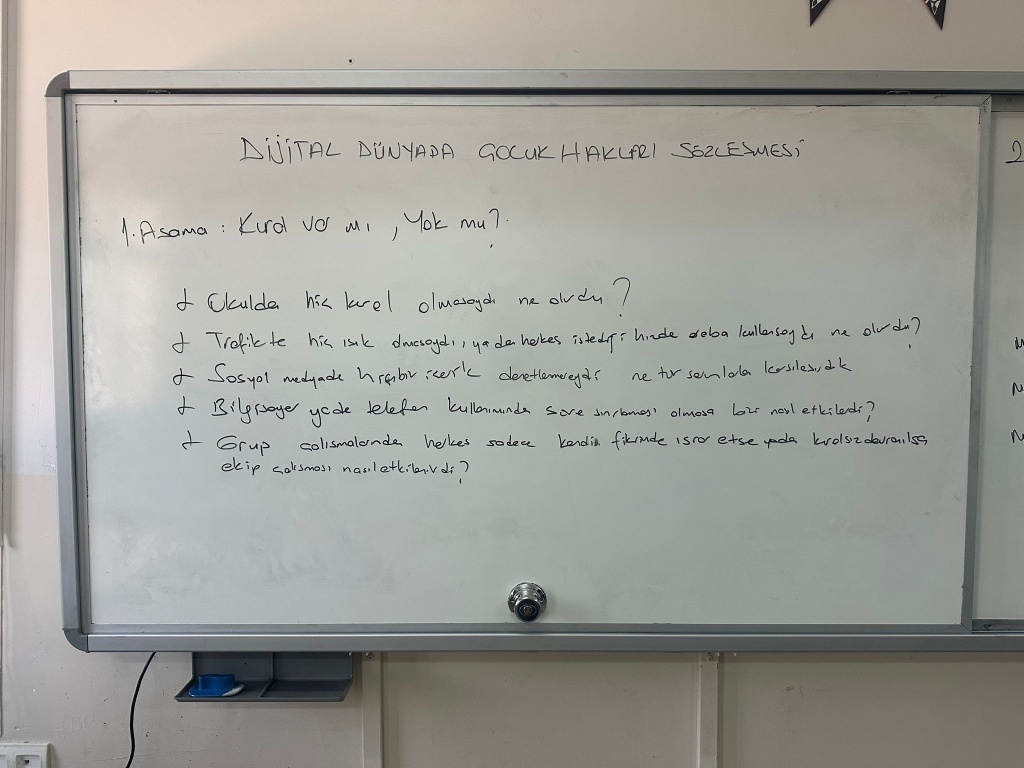 DİJİTAL DÜNYADA ÇOCUK HAKLARI SÖZLEŞMESİ
1. Aşama : Kural var mı, Yok mu?
Okulda hiç kural olmasaydı ne olurdu?
Trafikte hiç ışık olmasaydı, ya da herkes istediği hızda araba kullansaydı ne olurdu?
Sosyal medyada hiçbir içerik denetlenmeseydi ne tür sorunlarla karşılaşırdık
Bilgisayar yada telefon kullanımında süre sınırlaması olmasa bizi nasıl etkilerdi?
Grup çalışmalarında herkes sadece kendi fikrinde ısrar etse yada kuralsız davranılsa
ekip çalışması nasıl etkilenirdi?
2